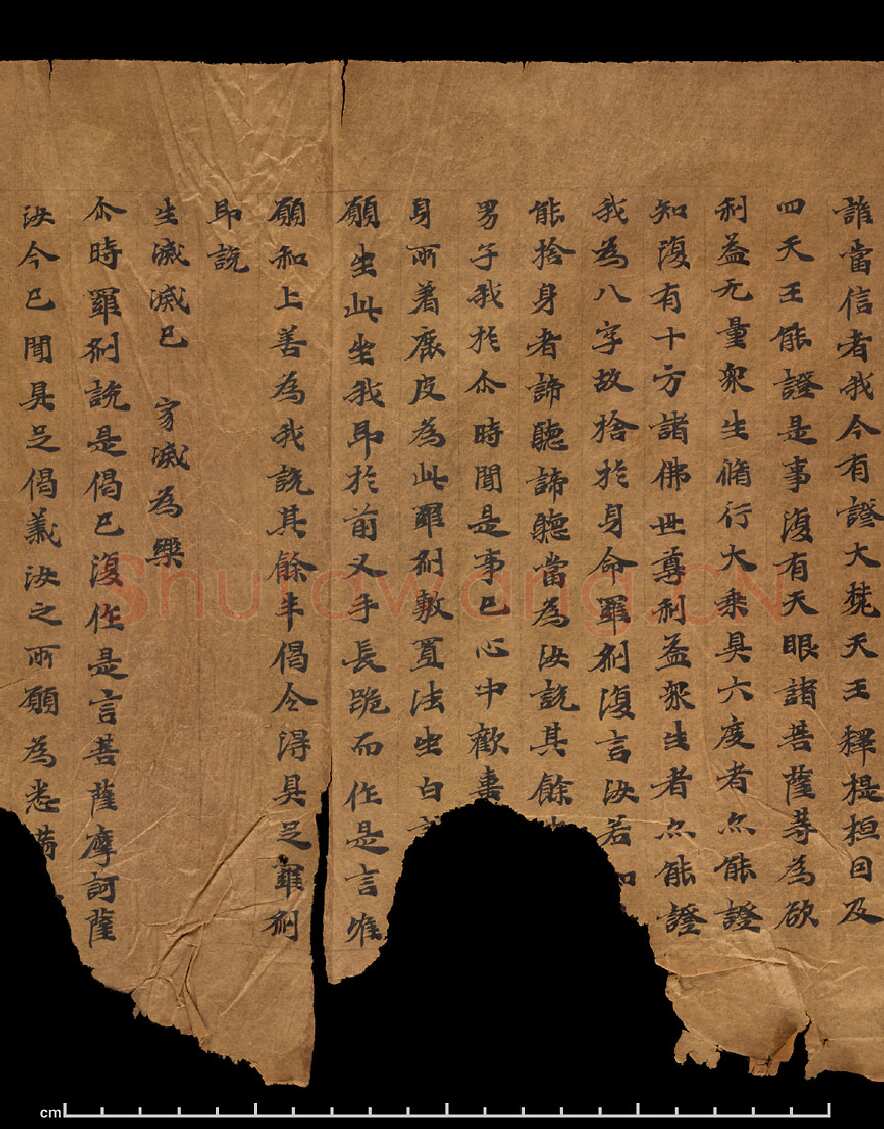 誰當信者我今有證大梵天王釋提桓因及
四天王能證是事復有天眼諸菩薩等為欲
利益无量眾生脩行大乘具六度者亦能證
知復有十方諸佛世尊利益眾生者亦能證
我為八字故捨於身命羅剎復言汝若
能捨身者諦聽諦聽當為汝說其餘
男子我於尒時聞是事已心中歡喜
身所著鹿皮為此羅剎敷置法坐白
願坐此坐我即於前叉手長跪而作是言唯
願和上善為我說其餘半偈令得具足羅剎
即說
生滅滅已　寂滅為樂
尒時羅剎說是偈已復作是言菩薩摩訶薩
汝今已聞具足偈義汝之所願為悉滿
Shufawang.CN
cm